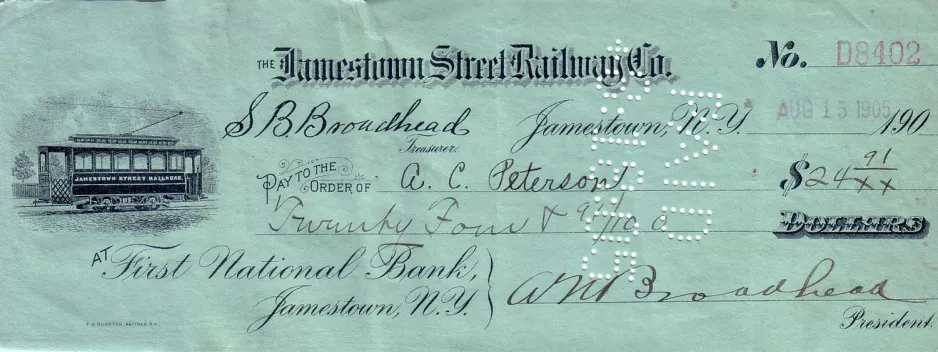 THE Jamestown Street Railway Co.
No. D8402
S B Broadhead
Treasurer.
Jamestown, N.Y. AUG 15 1905 190
PAY TO THE ORDER OF A. C. Peterson $24 91/xx
Twenty Four & 91/100 DOLLARS
JAMESTOWN STREET RAILROAD
AT First National Bank,
Jamestown, N.Y.
A N Broadhead
President.
BUFFALO, N.Y.
PAID